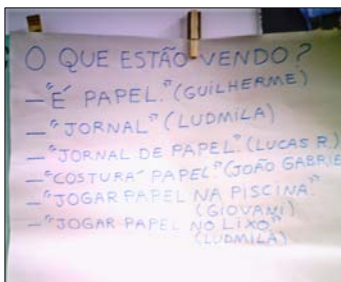 O QUE ESTÃO VENDO?
– "É PAPEL." (GUILHERME)
– "JORNAL" (LUDMILA)
– "JORNAL DE PAPEL." (LUCAS R.)
– "COSTURA PAPEL" (JOÃO GABRIE
– "JOGAR PAPEL NA PISCINA."
(GIOVANI)
– "JOGAR PAPEL NO LIXO"
(LUDMILA)